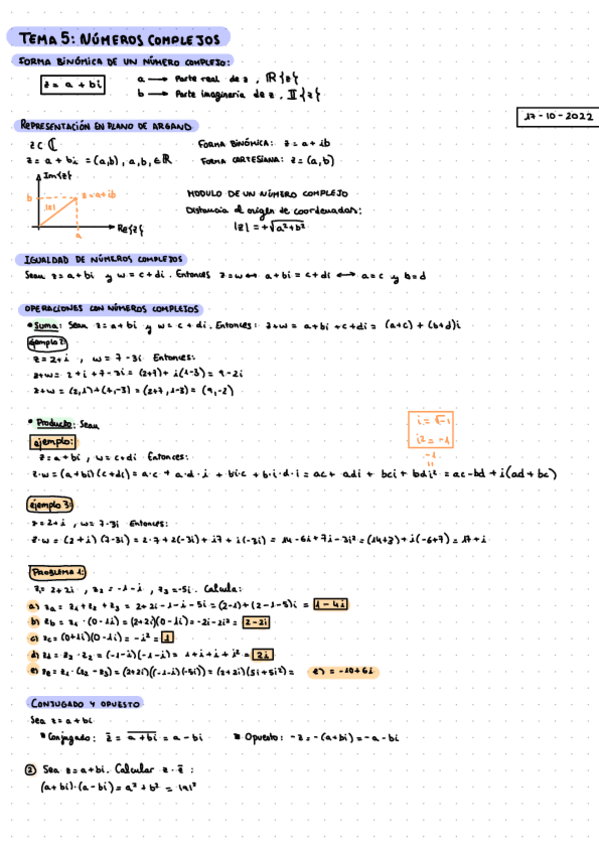 TEMA 5: NÚMEROS COMPLEJOS
FORMA BINÓMICA DE UN NÚMERO COMPLEJO:
z = a + bi
a → Parte real de z, ℝ{z}
b → Parte imaginaria de z, 𝕀{z}
17-10-2022
REPRESENTACIÓN EN PLANO DE ARGAND
z ⊂ ℂ
FORMA BINÓMICA: z = a + ib
z = a + bi = (a,b), a,b, ∈ ℝ
FORMA CARTESIANA: z = (a,b)
Im{z}
b
z = a+ib
|z|
a
Re{z}
MODULO DE UN NÚMERO COMPLEJO
Distancia al origen de coordenadas:
|z| = +√a²+b²
IGUALDAD DE NÚMEROS COMPLEJOS
Sean z = a+bi y w = c+di. Entonces z=w ↔ a+bi = c+di ↔ a=c y b=d
OPERACIONES CON NÚMEROS COMPLEJOS
• Suma: Sean z = a+bi y w = c+di. Entonces: z+w = a+bi+c+di = (a+c) + (b+d)i
ejemplo 2:
z = 2+i, w = 7-3i Entonces:
z+w = 2+i+7-3i = (2+7)+i(1-3) = 9-2i
z+w = (2,1)+(7,-3) = (2+7,1-3) = (9,-2)
• Producto: Sean
i = √-1
i² = -1
ejemplo:
z = a+bi, w = c+di Entonces:
-1
z·w = (a+bi)(c+di) = a·c + a·d·i + bi·c + b·i·d·i = ac + adi + bci + bdi² = ac-bd + i(ad+bc)
ejemplo 3:
z = 2+i, w = 7-3i Entonces:
z·w = (2+i)(7-3i) = 2·7+2(-3i)+i7+i(-3i) = 14-6i+7i-3i² = (14+3)+i(-6+7) = 17+i
PROBLEMA 1:
z₁ = 2+2i, z₂ = -1-i, z₃ = -5i. Calcula:
a) za = z1+z2+z3 = 2+2i-1-i-5i = (2-1)+(2-1-5)i = 1-4i
b) zb = z1·(0-1i) = (2+2i)(0-1i) = -2i-2i² = 2-2i
c) zc = (0+1i)(0-1i) = -i² = 1
d) z1 = z2·z2 = (-1-i)(-1-i) = 1+i+i+i² = 2i
e) ze = z1·(z2-z3) = (2+2i)((-1-i)(-5i)) = (2+2i)(5i+5i²) =
e) = -10+6i
CONJUGADO Y OPUESTO
Sea z = a+bi
Conjugado: z̄ = a+bi = a-bi
Opuesto: -z = -(a+bi) = -a-bi
② Sea z = a+bi. Calcular z·z̄:
(a+bi)·(a-bi) = a²+b² = |z|²